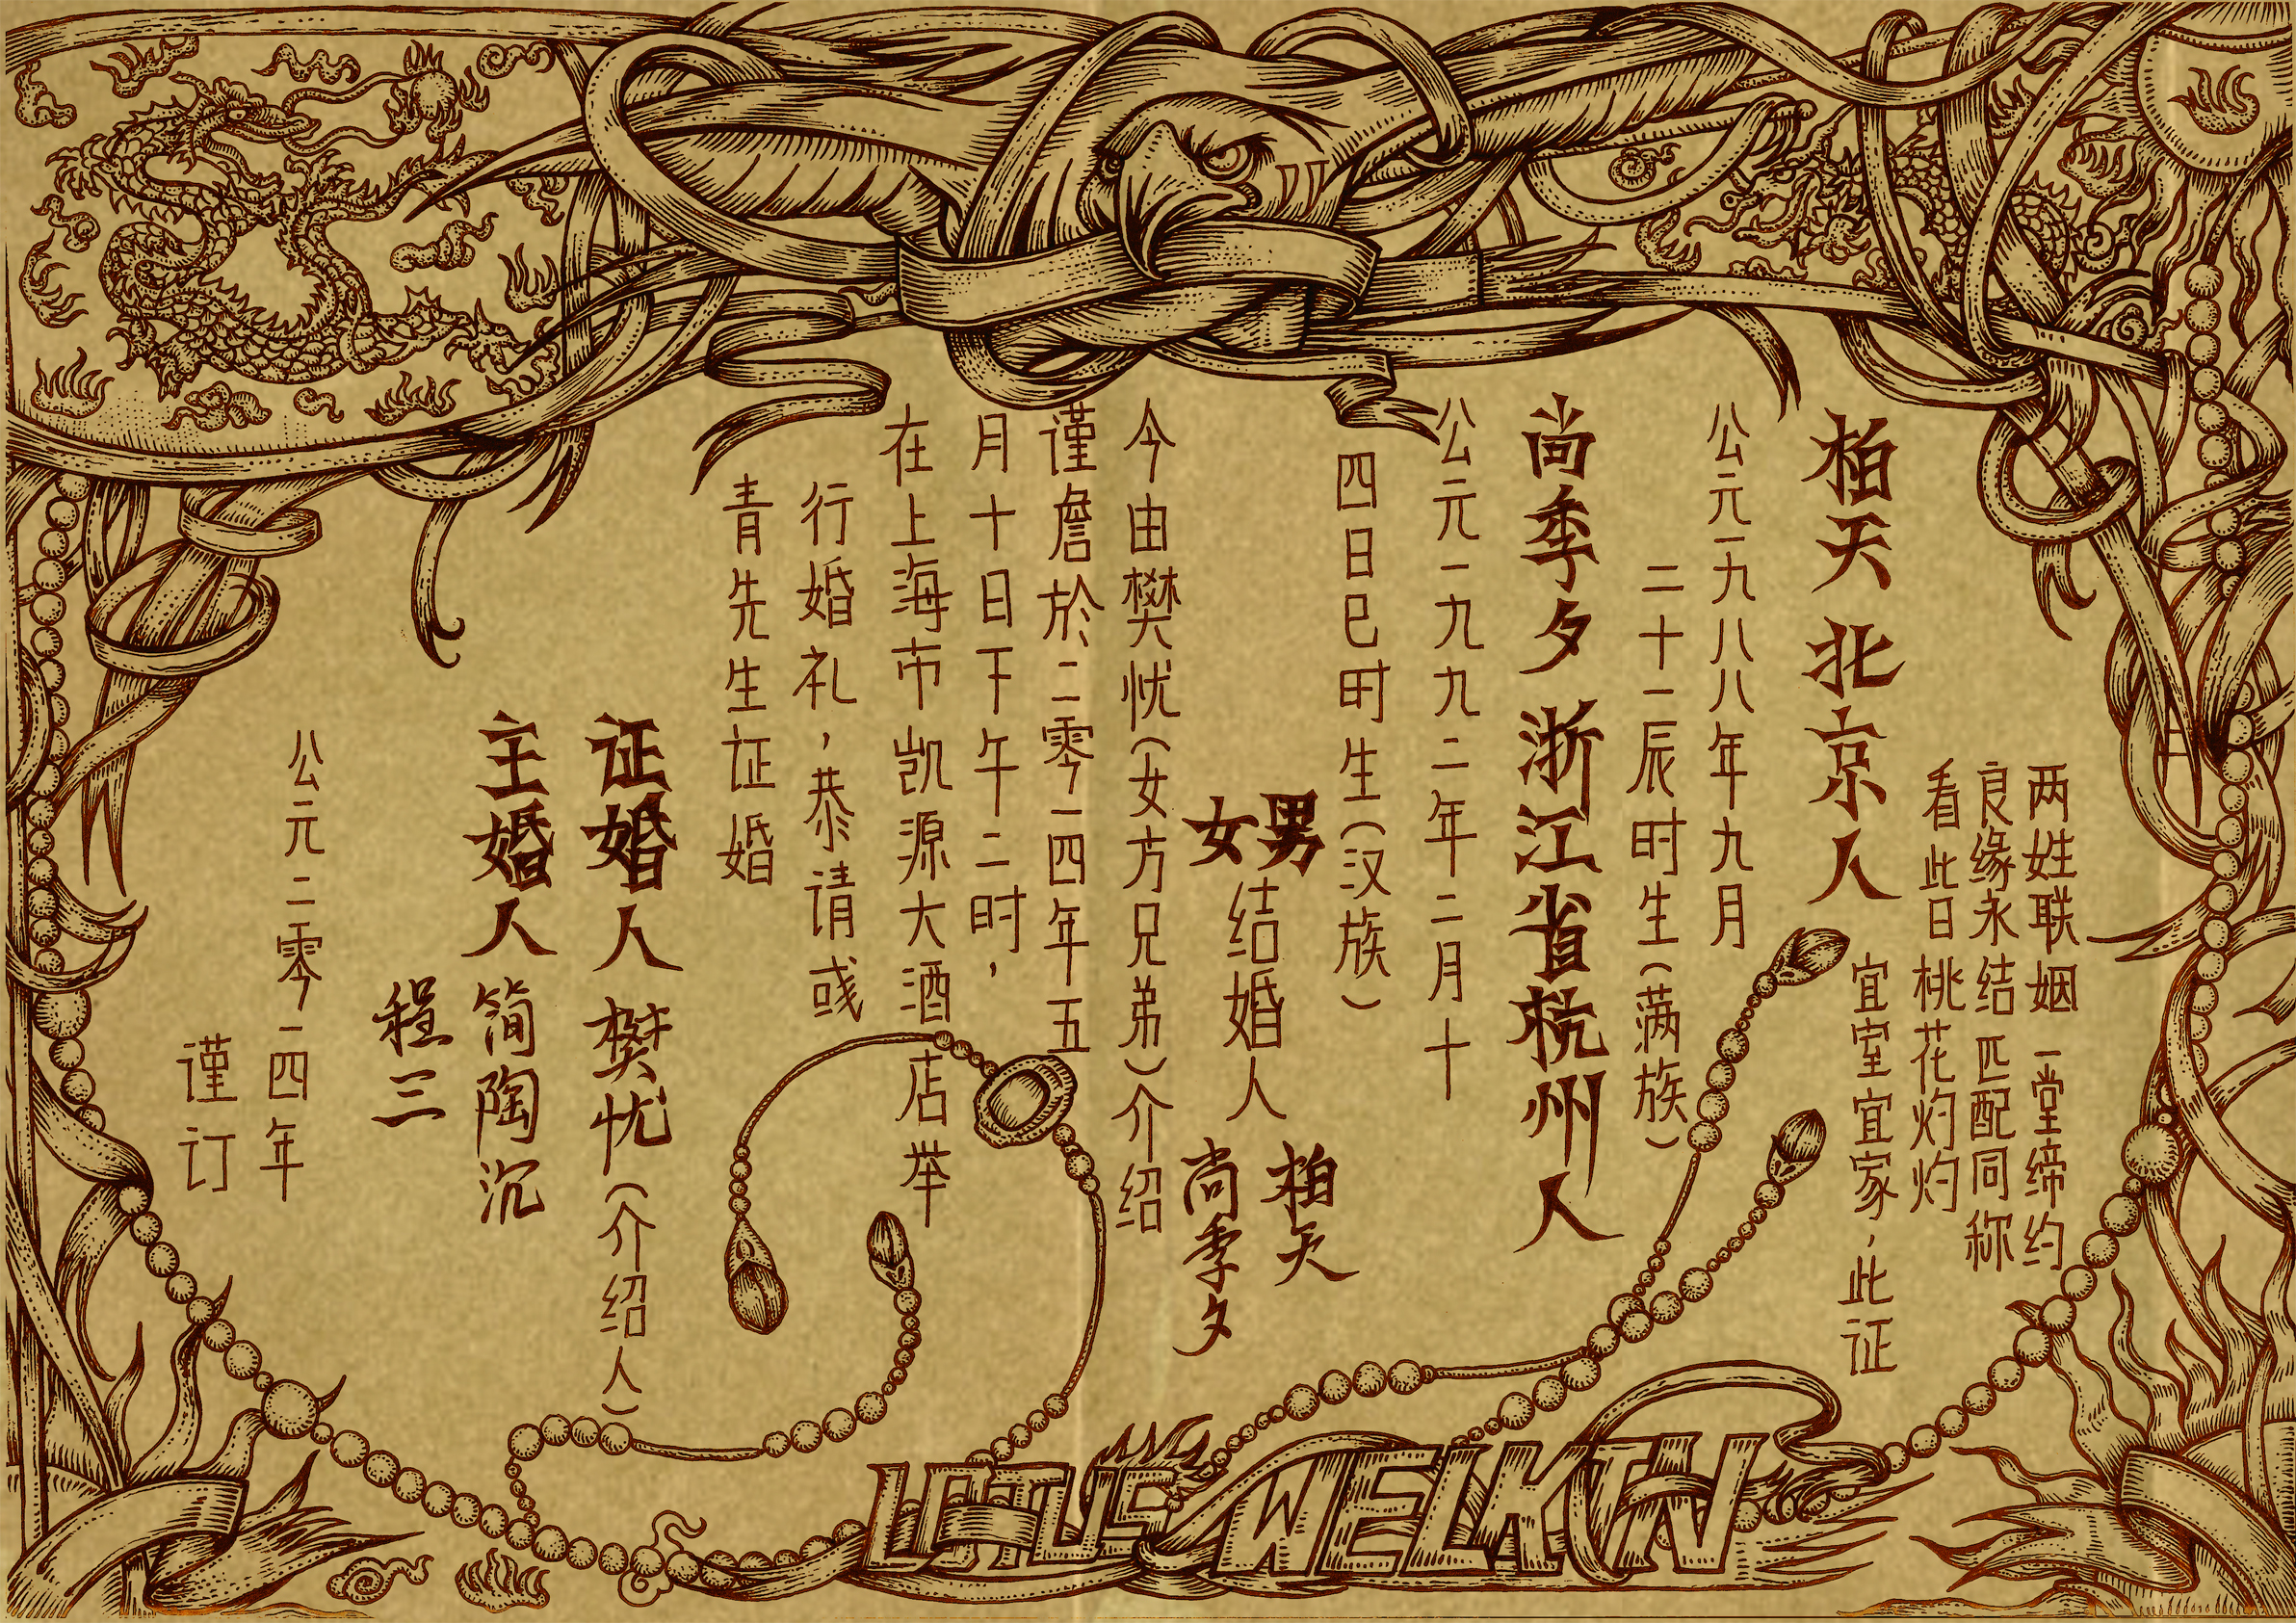 两姓联姻 一堂缔约
良缘永结 匹配同称
看此日桃花灼灼
宜室宜家，此证
柏天 北京人
公元一九八八年九月
二十二辰时生（满族）
尚季夕 浙江省杭州人
公元一九九二年二月十
四日巳时生（汉族）
男
女
结婚人
柏天
尚季夕
今由樊忧（女方兄弟）介绍
谨詹於二零一四年五
月十日下午二时，
在上海市凯源大酒店举
行婚礼，恭请彧
青先生证婚
证婚人 樊忧（介绍人）
主婚人 简陶沉
程三
公元二零一四年
谨订
LOTUS WELKIN